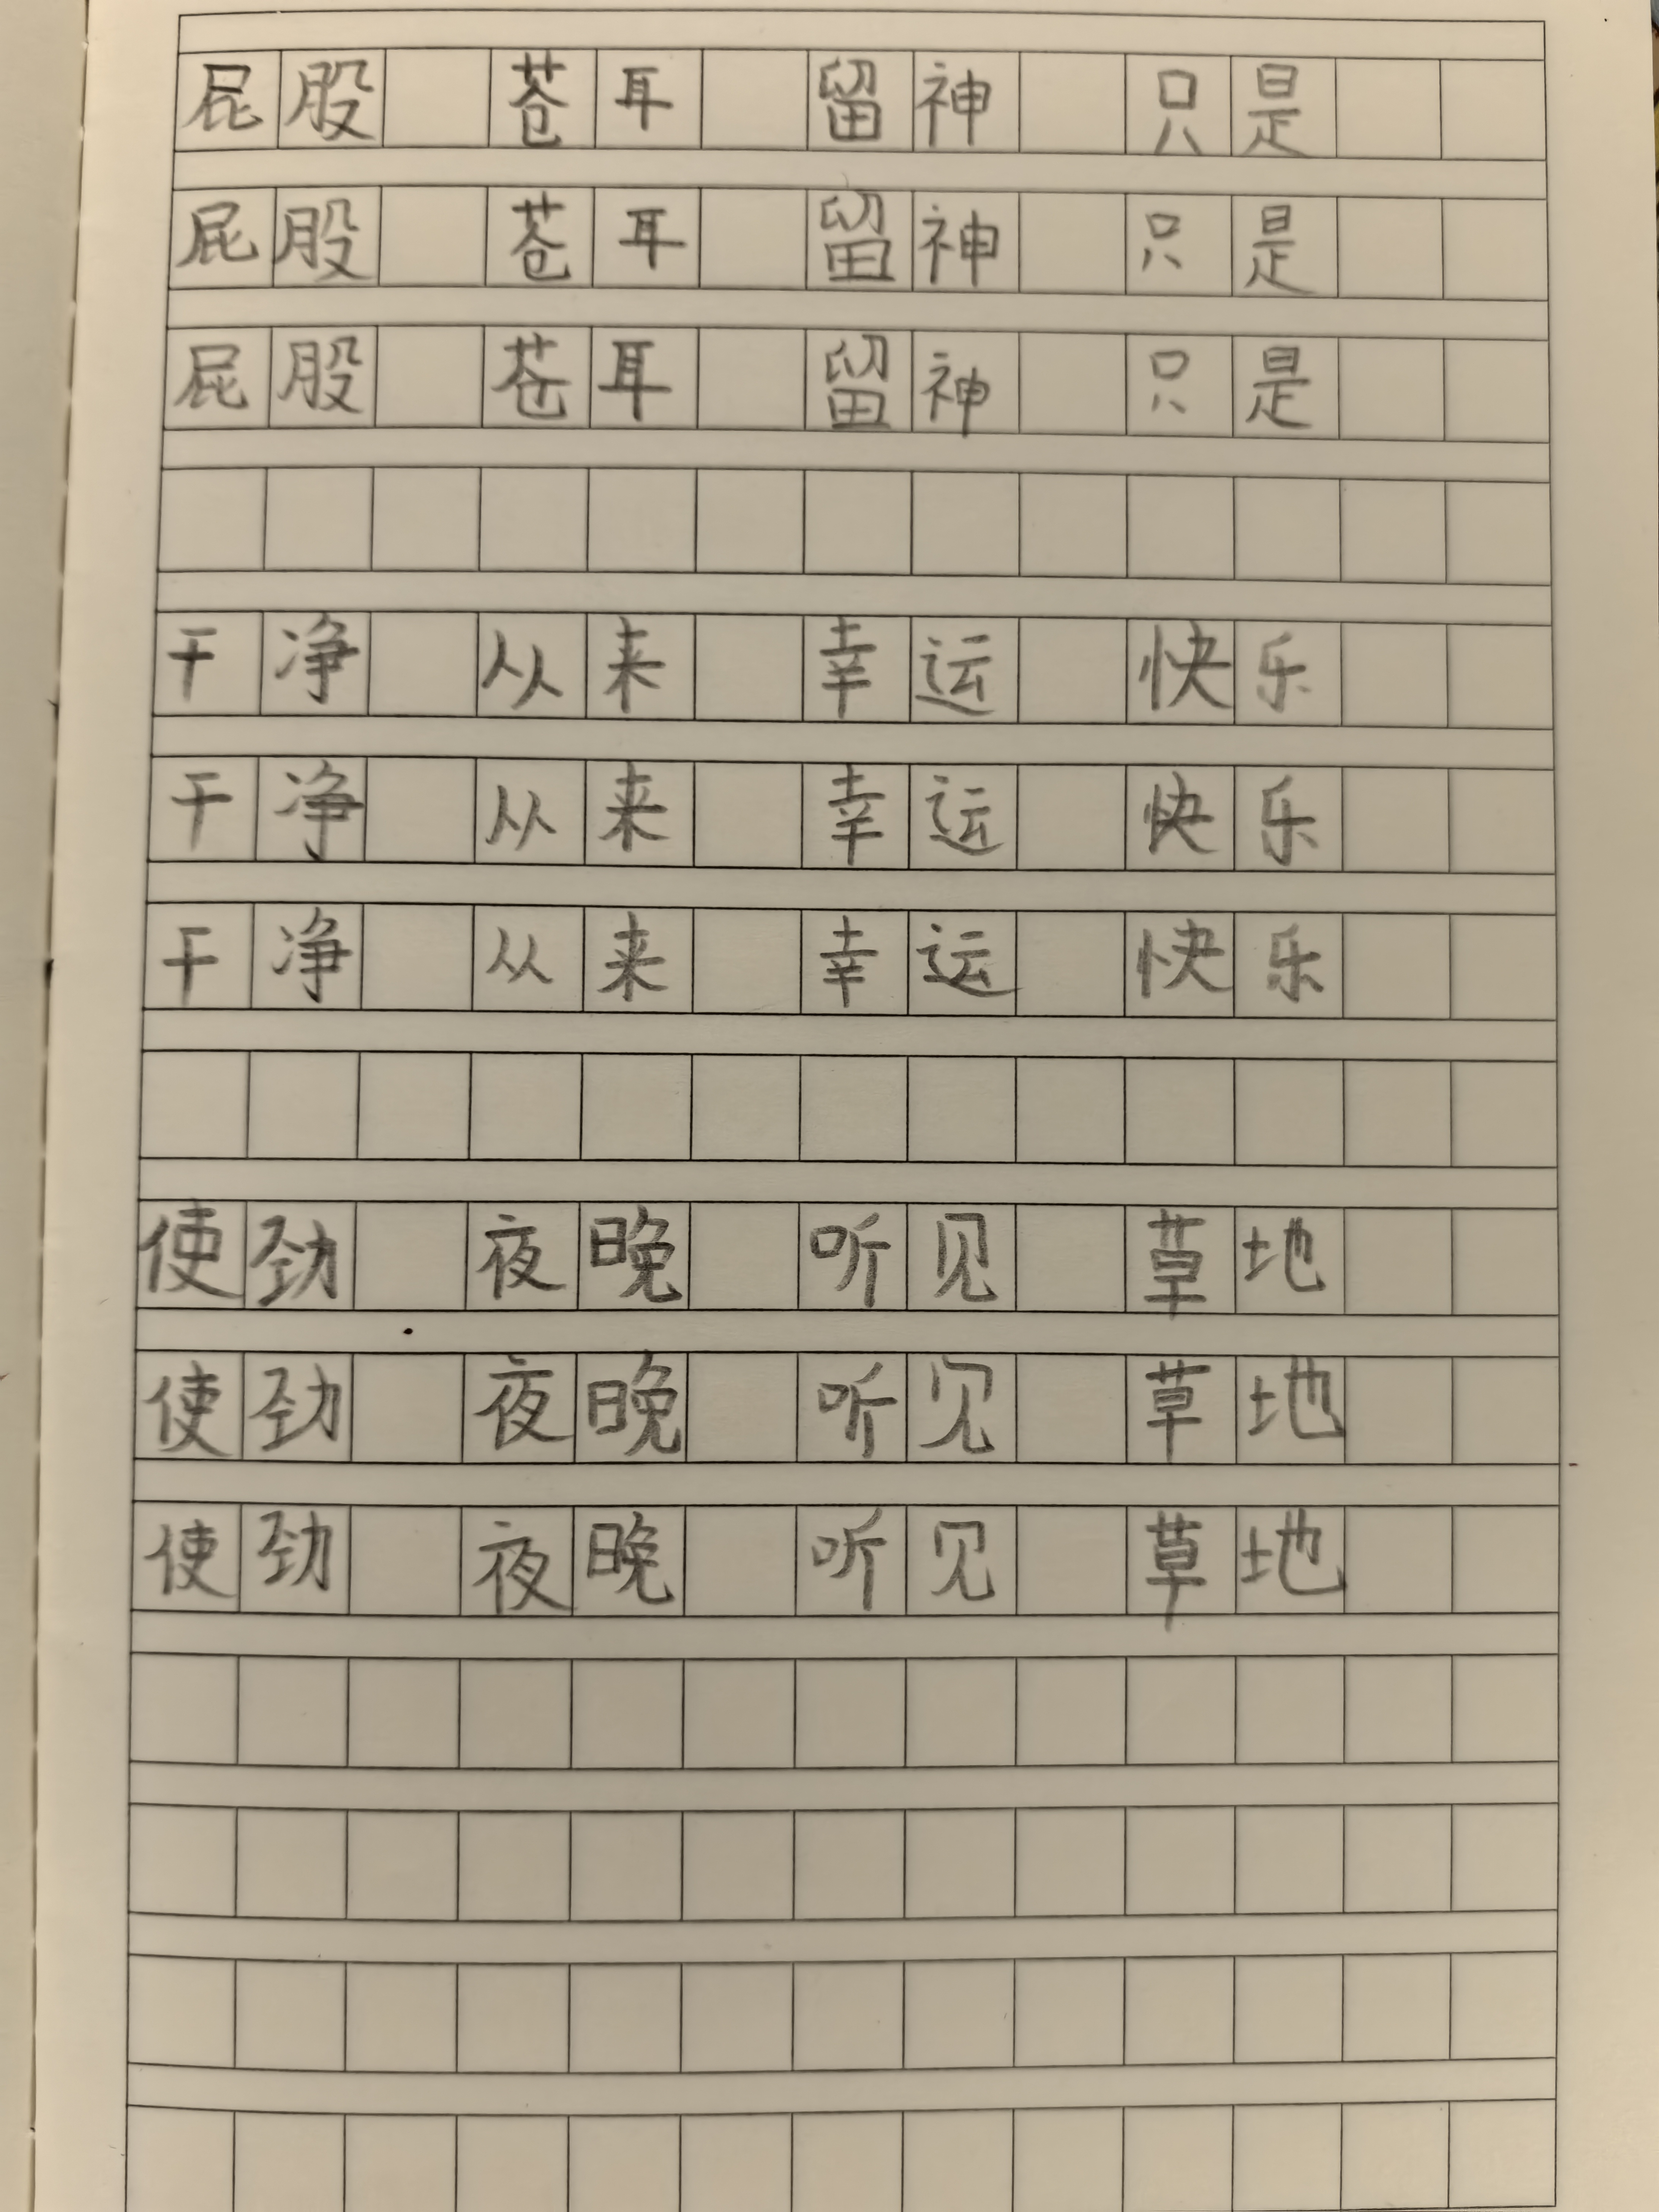 屁股 苍耳 留神 只是
屁股 苍耳 留神 只是
屁股 苍耳 留神 只是
干净 从来 幸运 快乐
干净 从来 幸运 快乐
干净 从来 幸运 快乐
使劲 夜晚 听见 草地
使劲 夜晚 听见 草地
使劲 夜晚 听见 草地